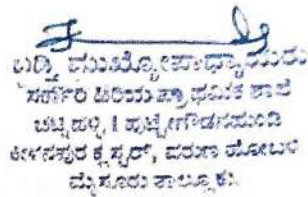 ಬಡ್ತಿ ಮುಖ್ಯೋಪಾಧ್ಯಾಯರು
ಸರ್ಕಾರಿ ಹಿರಿಯ ಪ್ರಾಥಮಿಕ ಶಾಲೆ
ಚಟ್ನಹಳ್ಳಿ / ಪುಟ್ಟೇಗೌಡನಹುಂಡಿ
ಕೀಳನಪುರ ಕ್ಲಸ್ಟರ್, ವರುಣ ಹೋಬಳಿ
ಮೈಸೂರು ತಾಲ್ಲೂಕು.